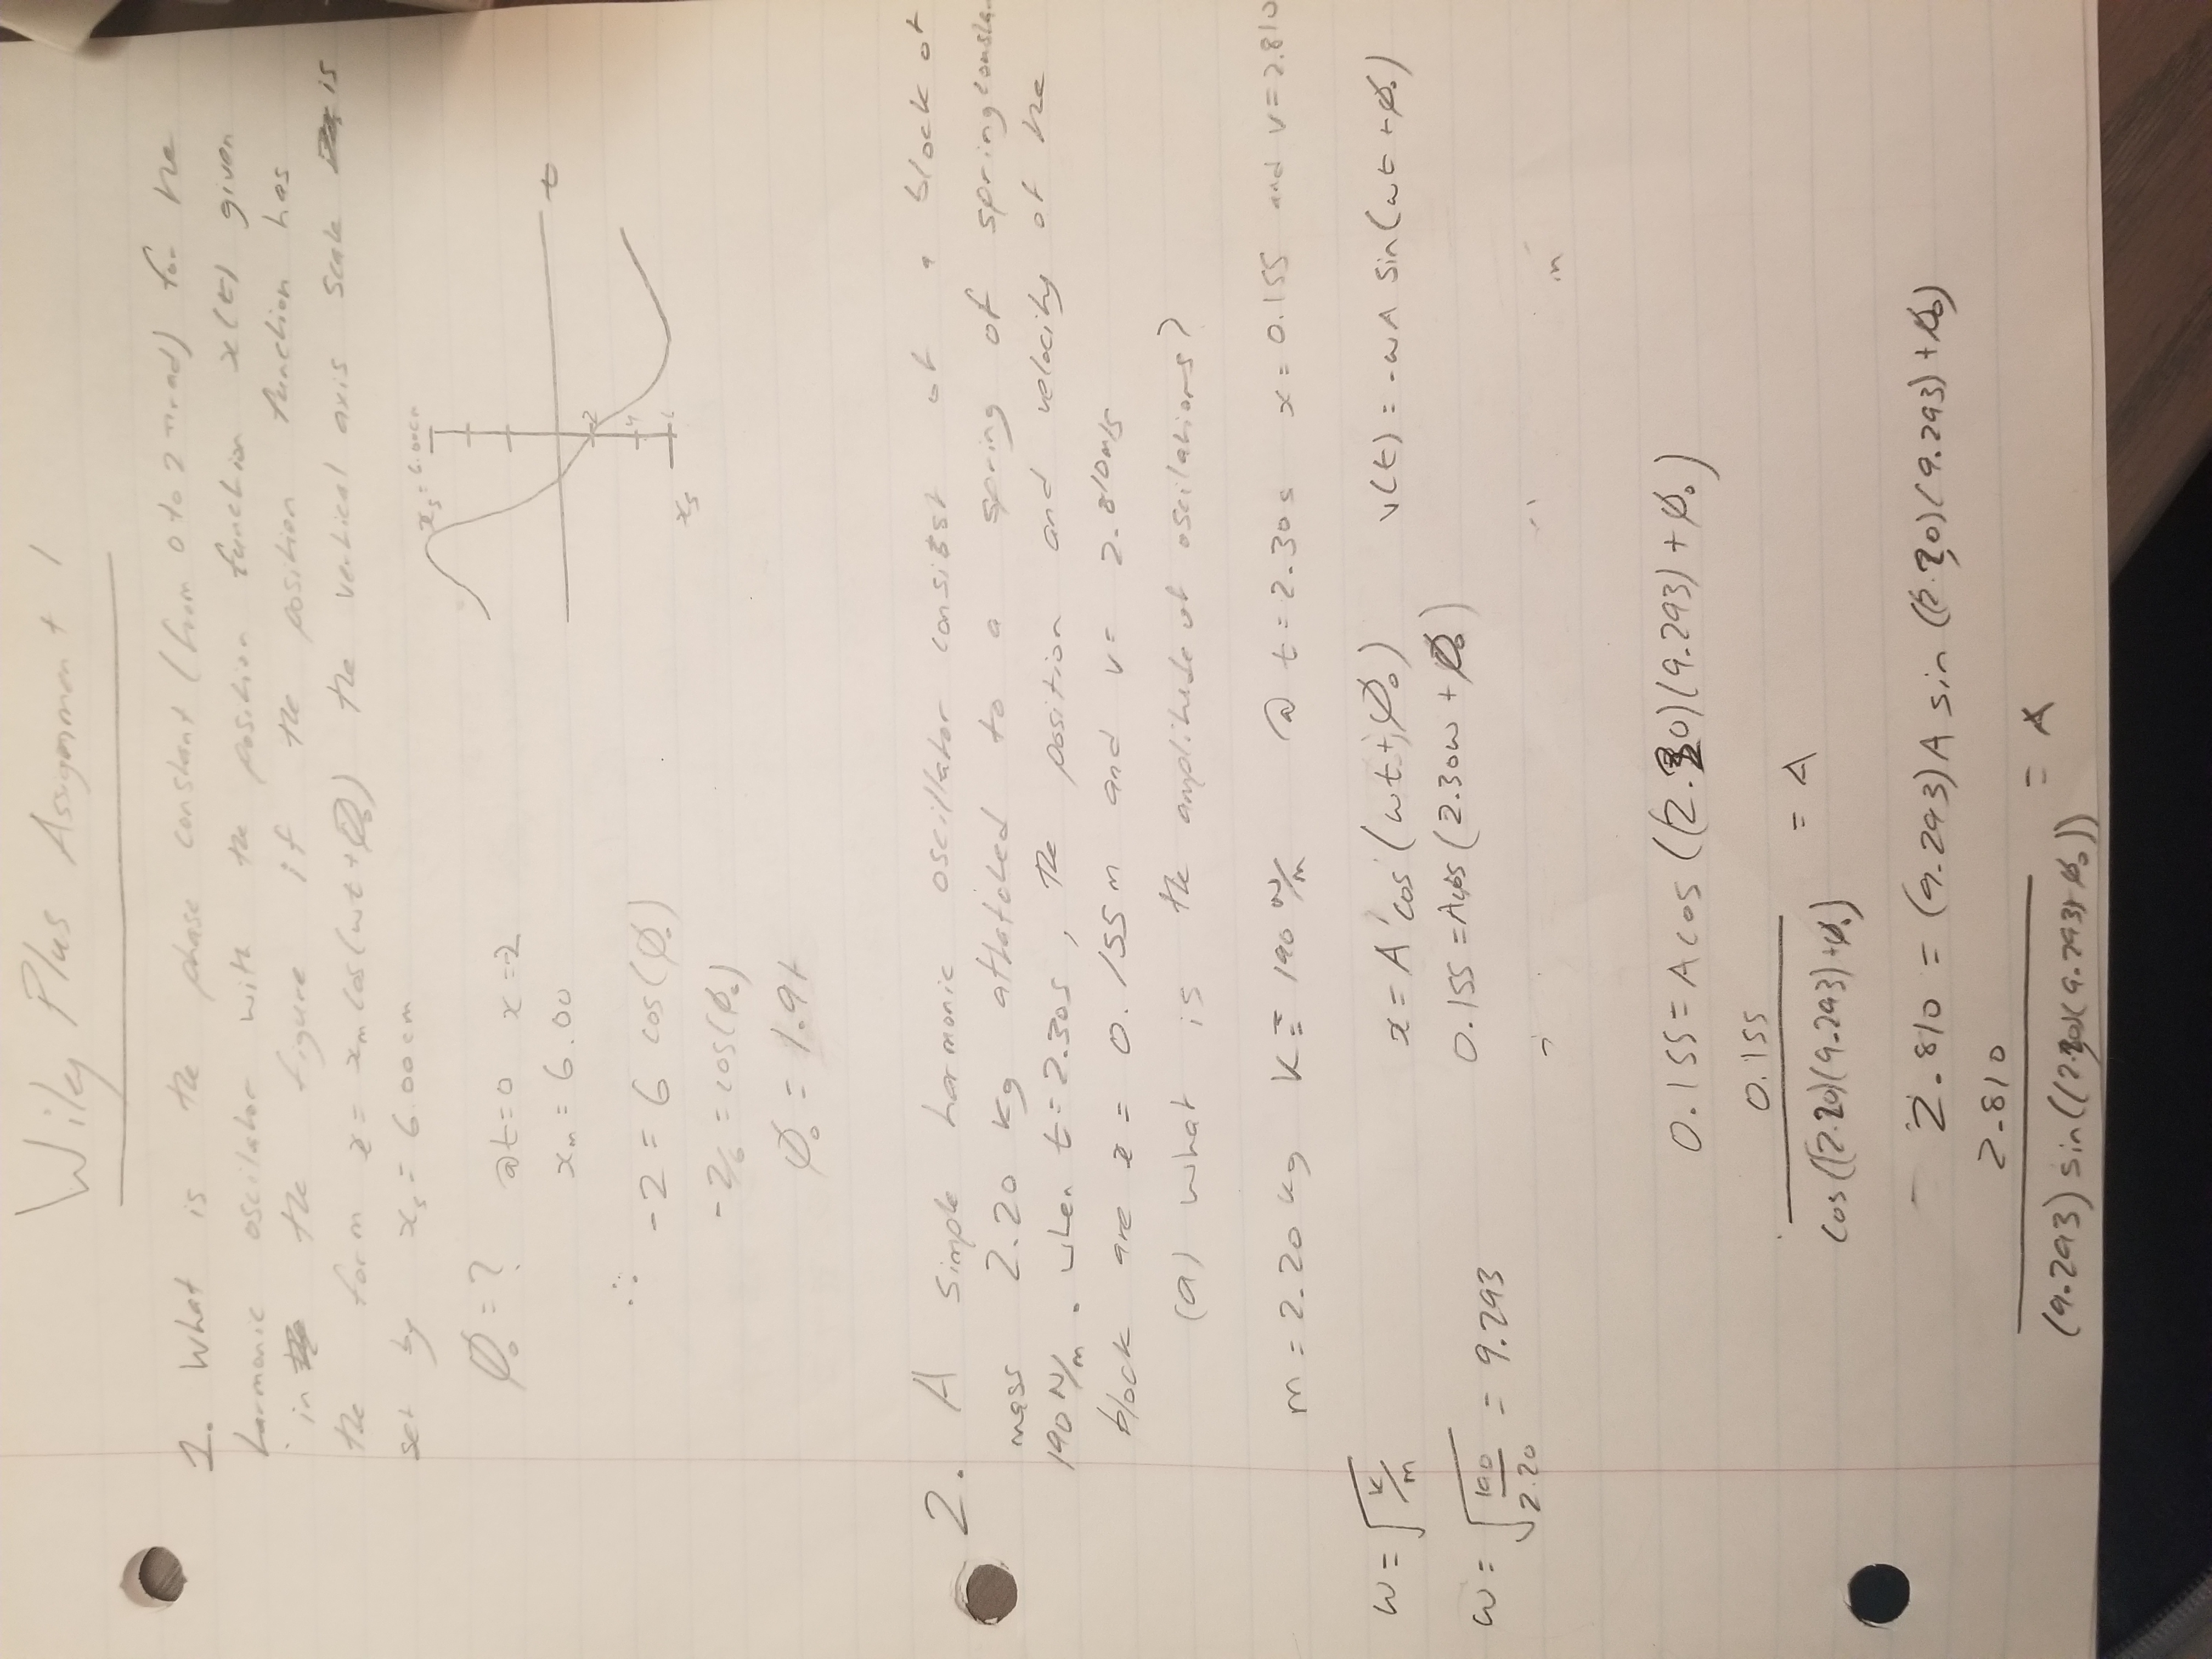 Wiley Plus Assignment 1
1. What is the phase constant (from 0 to 2πrad) for the
harmonic oscilator with the position function x(t) given
in the figure if the position function has
the form x = xₘ cos(ωt+Ø₀) the vertical axis scale is
set by xₛ = 6.00cm
xₛ = 6.00cm
Ø₀ = ? @t=0 x=-2
xₘ = 6.00
t
-2
4
6
xₛ
∴
-2 = 6 cos(Ø₀)
-2/6 = cos(Ø₀)
Ø₀ = 1.91
2. A simple harmonic oscillator consisst of a block of
mass 2.20 kg athatched to a spring of spring
190 N/m. when t=2.30s, the position and velocity of the
block are x = 0.155m and v= 2.810m/s
(a) what is the amplitude of oscilations?
m = 2.20 kg K = 190 N/m @ t=2.30s x=0.155 and v=2.810
ω = √k/m x = A cos(ωt+Ø₀) v(t) = -ωA sin(ωt+Ø₀)
0.155 = Acos(2.30ω + Ø₀)
ω = √190/2.20 = 9.293
m
0.155 = A cos((2.30)(9.293) + Ø₀)
0.155
= A
cos((2.30)(9.293)+Ø₀)
- 2.810 = (9.293) A sin((2.30)(9.293) + Ø₀)
2.810
= A
(9.293) sin((2.30)(9.293)+Ø₀))